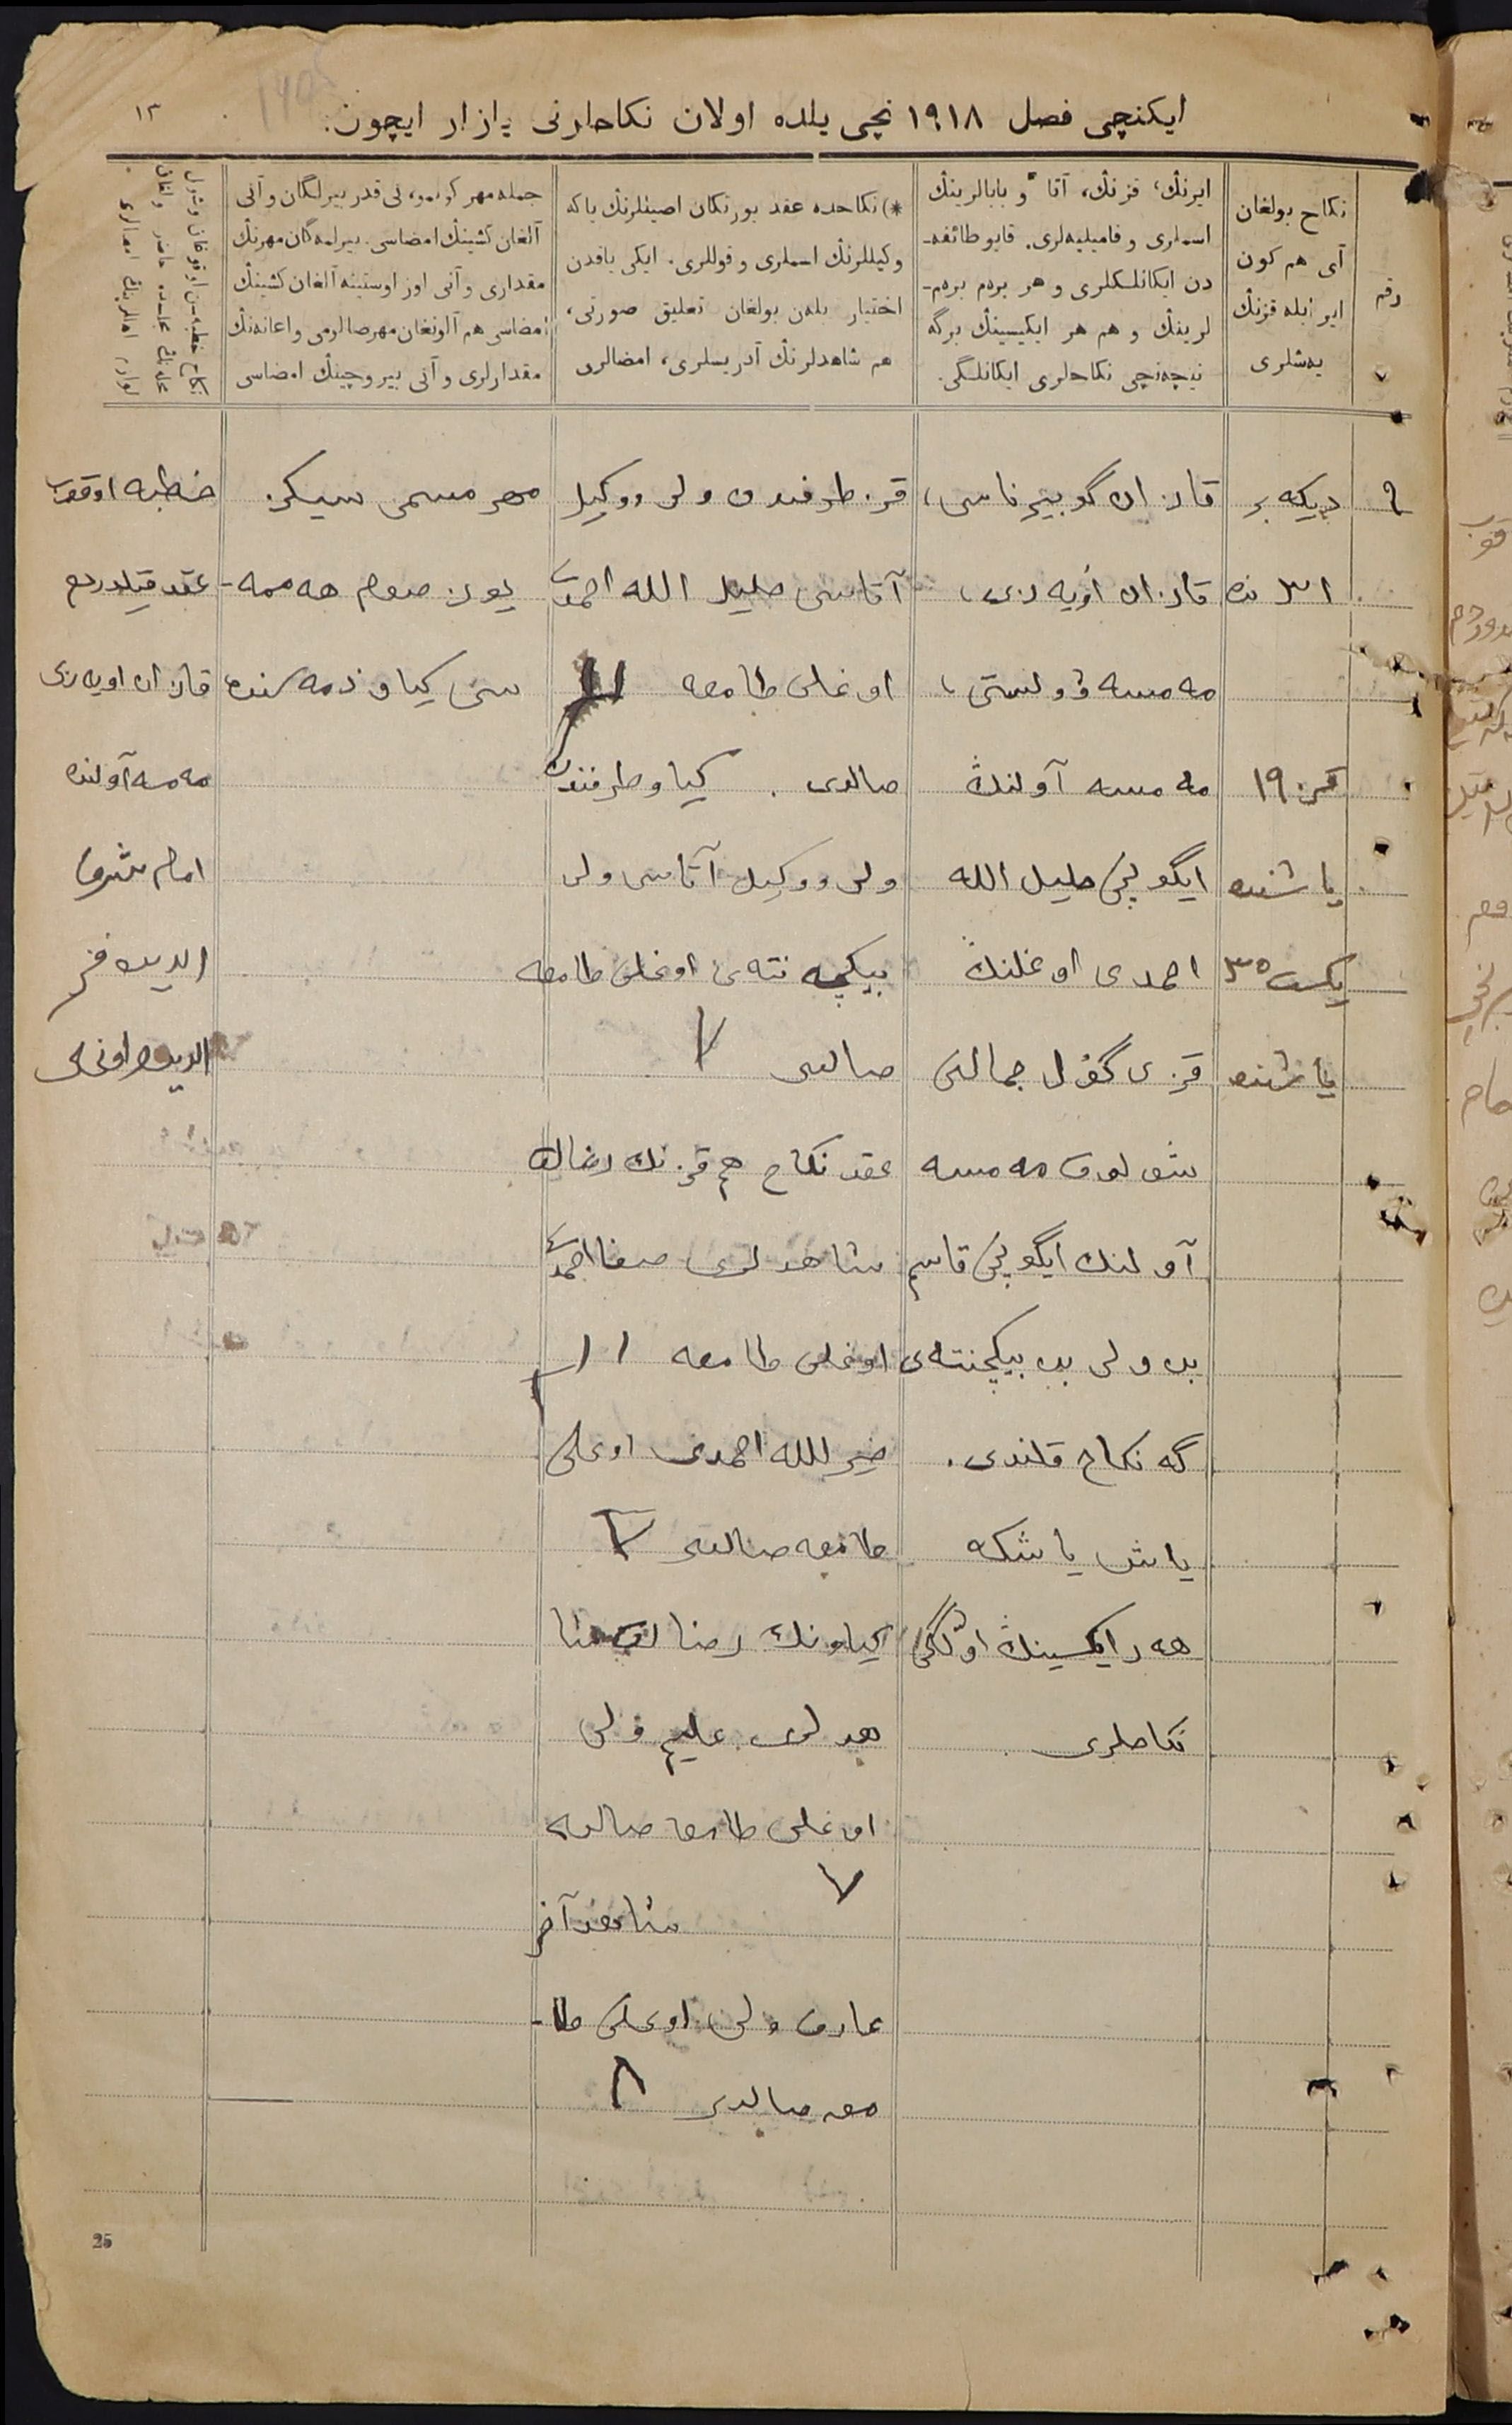 ایکنچی فصل ۱۹۱۸ نچی یلده اولان نکاحارنی یازار ایچون.
۱۳
رقم
نکاح بولغان
آی هم کون
ایر ایله قزنڭ
یەشلری
ایرنڭ، قزنڭ، آتا و بابالرینڭ
اسملری و فامیلیەلری. قایو طائفه‌ـ
دن ایکانلکلری و هر برەم برەم‌ـ
لرینڭ و هم هر ایکیسینڭ برگه
نیچەنچی نکاحلری ایکانلگی.
*) نکاحده عقد یورتکان اصیللرنڭ یاکه
وکیللرنڭ اسملری و قوللری. ایکی یاقدن
اختیار بلەن بولغان تعلیق صورتی،
هم شاهدلرنڭ آدریسلری، امضالری
جمله مهر کوپمو، نی قدر بیرلگان و آنی
آلغان کشینڭ امضاسی. بیرلمەگان مهرنڭ
مقداری و آنی اوز اوستینه آلغان کشینڭ
امضاسی هم آلونغان مهر صالومی و اعانەنڭ
مقدارلری و آنی بیروچینڭ امضاسی
نکاح خطبەسن اوقوغان
۹
دیکەبر
۳۱ نده
۱۹
یاشنده
۳۵
یاشنده
قازان گوبیرناسی،
قازان اویەزی،
مەمسه ۋولستی،
مەمسه آولنڭ
ایگوچی خلیل الله
احمدی اوغلنڭ
قزی جمالنی
شول مەمسه
آولنڭ ایگوچی قاسم
بن ولی بن بیکچنتەی
گه نکاح قلندی.
یاش یاشکه
هەر ایکسینڭ اولگی
نکاحلری
قز طرفندن ولی ووکیل
آتاسی خلیل الله احمدی
اوغلی طامغه
صالدی. کیاو طرفندن
ولی ووکیل آتاسی ولی
بیکچنتەی اوغلی طامغه
صالدی
عقد نکاح هم قزنڭ رضالق
شاهدلری صفا احمدی
اوغلی طامغه
خیرالله احمدی اوغلی
طامغه صالدی
کیاونڭ رضالق شا
هدلری علیم ولی
اوغلی طامغا صالدی
شاهد آخر
عارف ولی اوغلی طا-
مغه صالدی
مهر مسمی سیکز
یوز صوم هەممه-
سی کیاو ذمەسنده
خطبه اوقوب
عقد قیلدردم
قازان اویەزی
مەمسه آولنده
امام شرف
الدین فخر
الدین اوغلی
25